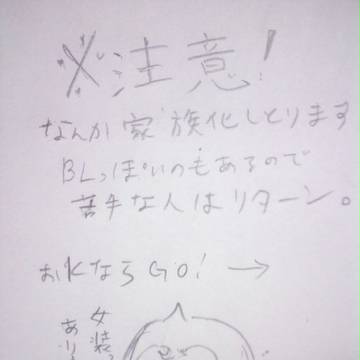 ※注意!
なんか家族化しとります
BLっぽいのもあるので
苦手な人はリターン。
おkならGO!→
女装っ
あり